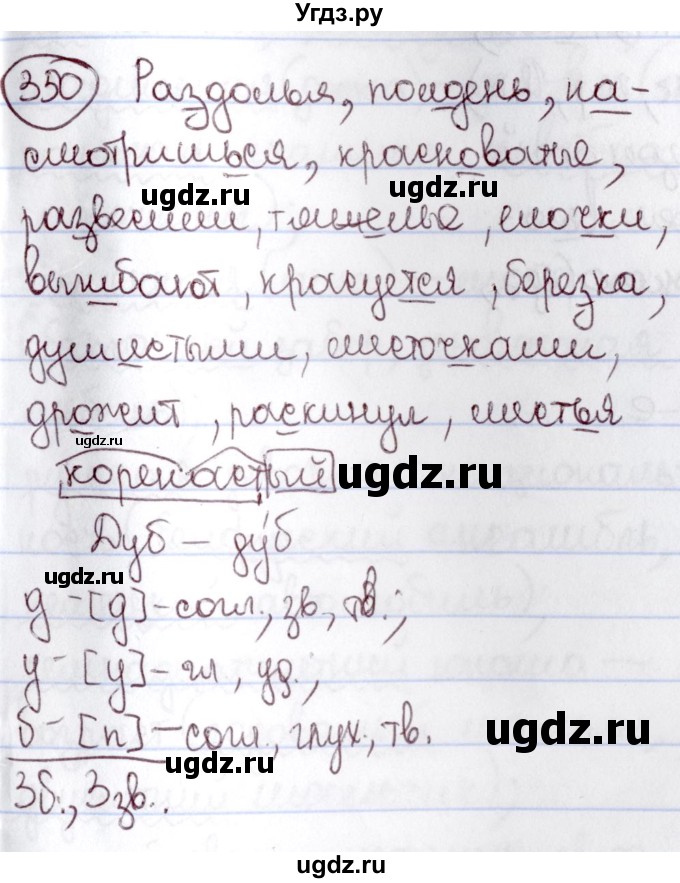 Угдз.ру
330 Раздолья, полдень, на-
смотришься, красноватые,
ugdz.ru ugdz.ru
развесили, тяжелые, елочки,
выгибают, красуется, березка,
душистыми, листочками,
дрожит, раскинул, листья
ugdz.ru
коренастый ugdz.ru
Дуб – ду́б
ugdz.ru
д – [д] – согл., зв., тв.,
у – [у] – гл., уд.,
б – [п] – согл., глух., тв.
ugdz.ru ugdz.ru
3б., 3зв.
ugdz.ru